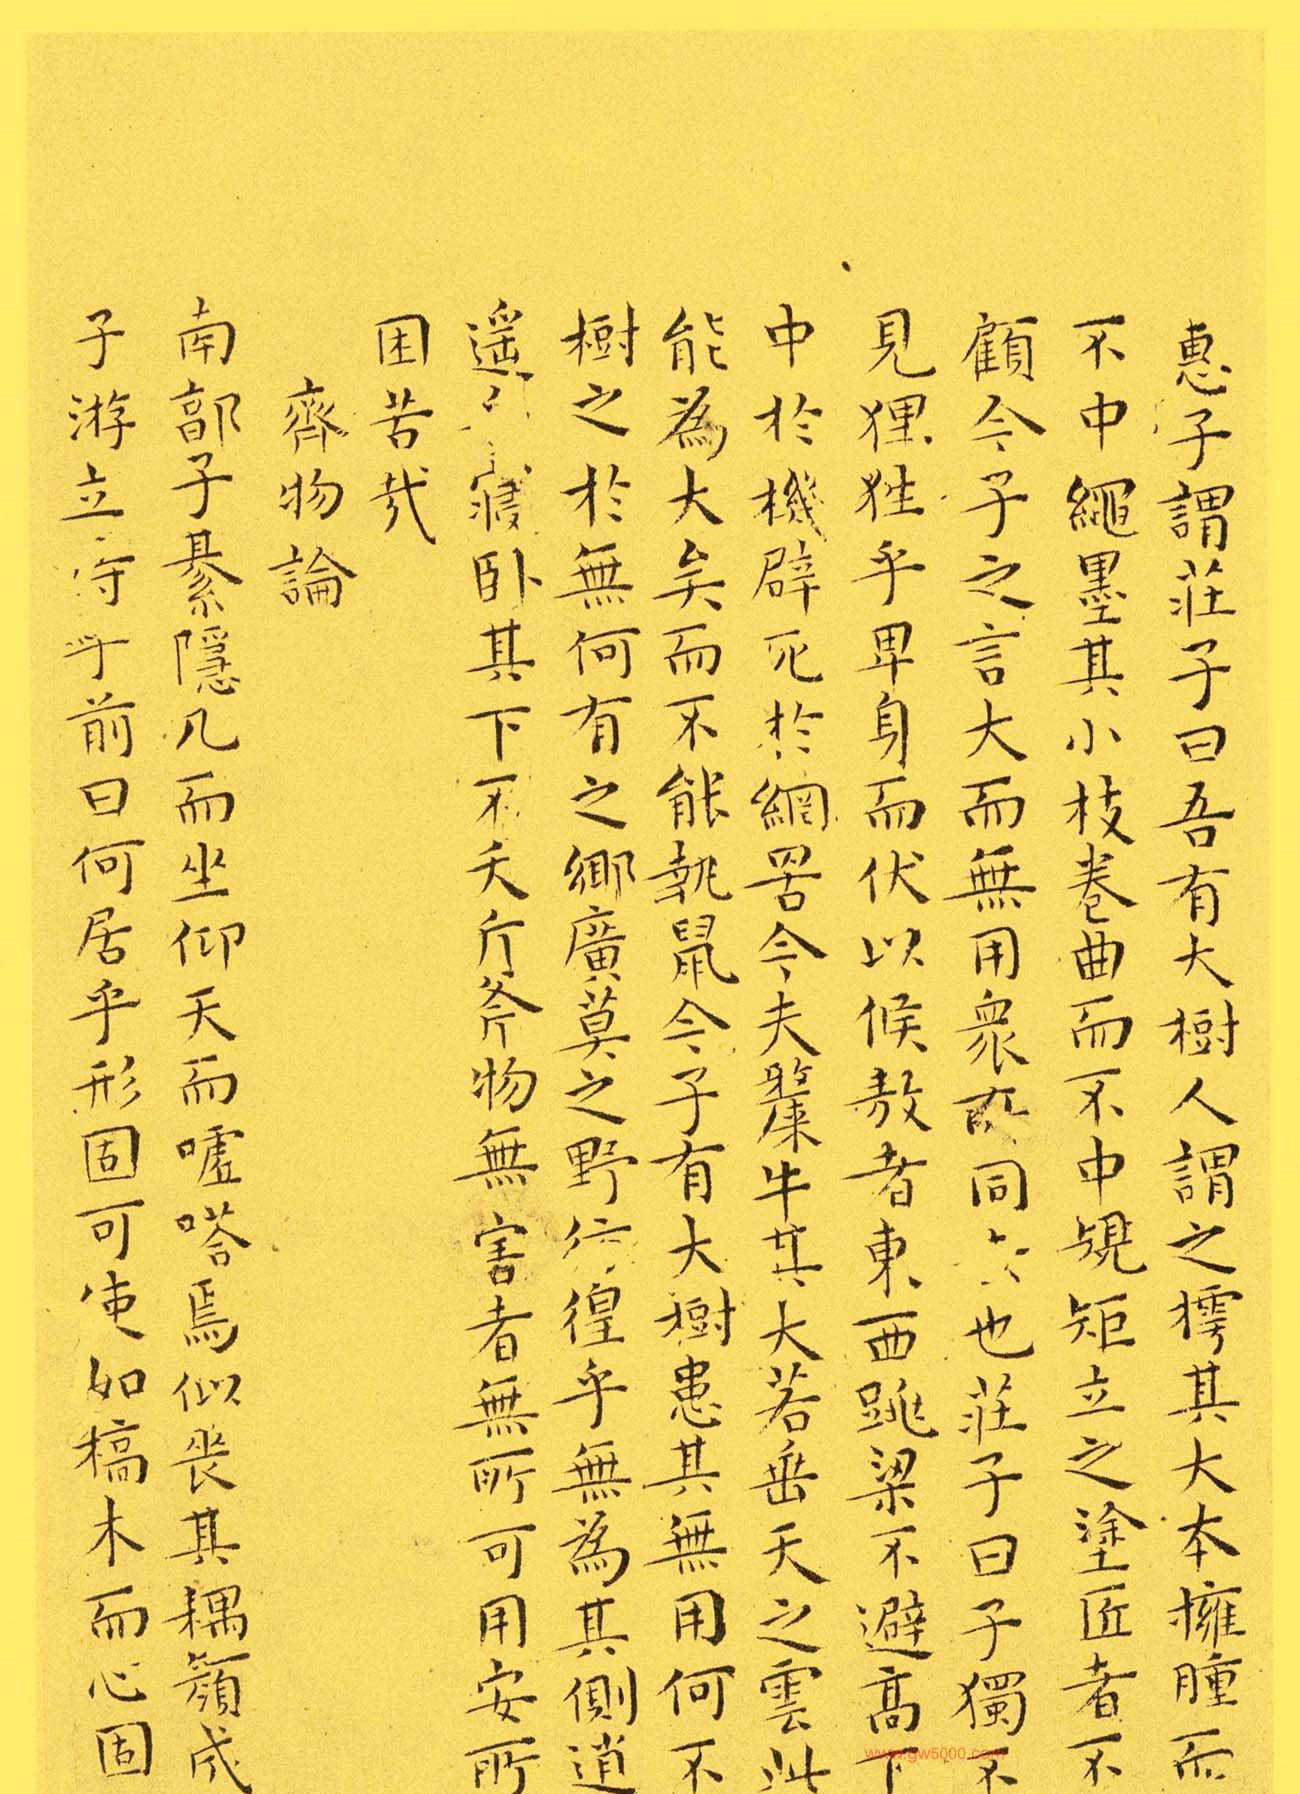 惠子謂莊子曰吾有大樹人謂之樗其大本擁腫而
不中繩墨其小枝卷曲而不中規矩立之塗匠者不
顧今子之言大而無用衆所同去也莊子曰子獨不
見狸狌乎卑身而伏以候敖者東西跳梁不避高下
中於機辟死於網罟今夫斄牛其大若垂天之雲此
能為大矣而不能執鼠今子有大樹患其無用何不
樹之於無何有之鄉廣莫之野彷徨乎無為其側逍
遥乎寢臥其下不夭斤斧物無害者無所可用安所
困苦哉
齊物論
南郭子綦隱几而坐仰天而嘘嗒焉似喪其耦顔成
子游立侍乎前曰何居乎形固可使如槁木而心固
www.gw5000.com